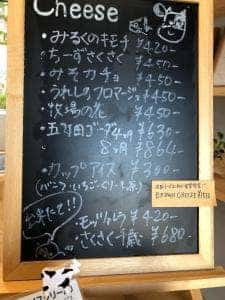 Cheese
・みるくのキモチ ¥420-
・ちーずさくさく ¥450-
・みそカチョ ¥450-
・うれしのフロマージュ ¥450-
・牧場の花 ¥450-
・五町田ゴーダ 4ヶ月 ¥630-
8ヶ月 ¥864-
・カップアイス ¥390-
(バニラ・いちご・ぐり茶・
出来たて!!
モッツァレラ ¥420-
さくさく千歳 ¥680-